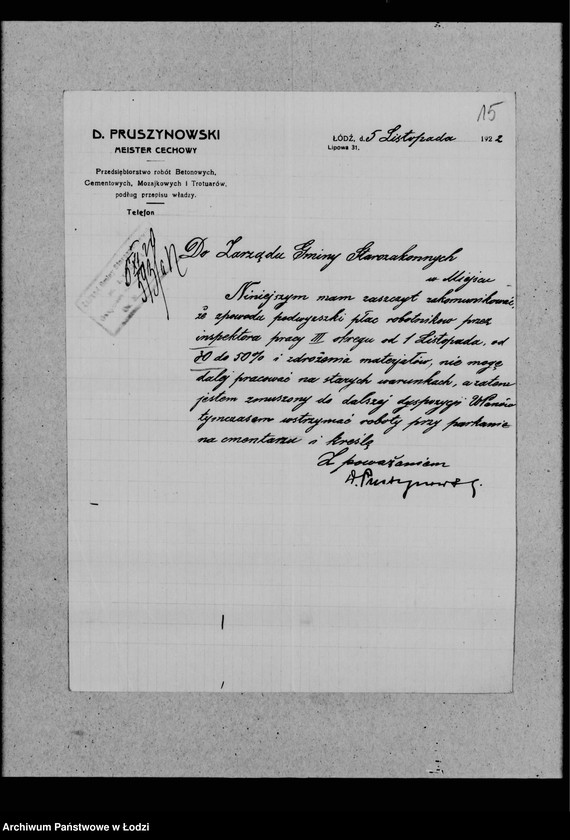 15
D. PRUSZYNOWSKI
MEISTER CECHOWY
Przedsiębiorstwo robót Betonowych,
Cementowych, Mozajkowych i Trotuarów,
podług przepisu władzy.
Telefon
ŁÓDŹ, d. 5 Listopada 1922
Lipowa 31.
Do Zarządu Gminy Starozakonnych
w Miejscu
Niniejszym mam zaszczyt zakomunikować,
że zpowodu podwyszki płac robotnikow przez
inspektora pracy III okręgu od 1 Listopada. od
30 do 50% i zdrożenie materjałów, nie mogę
dalej pracować na starych warunkach, a zatem
jestem zmuszony do dalszej dyspozycji WPanów
tymczasem wstrzymać roboty przy parkanie
na cmentarzu i kreślę
Z poważaniem
D. Pruszynowski.
Archiwum Państwowe w Łodzi